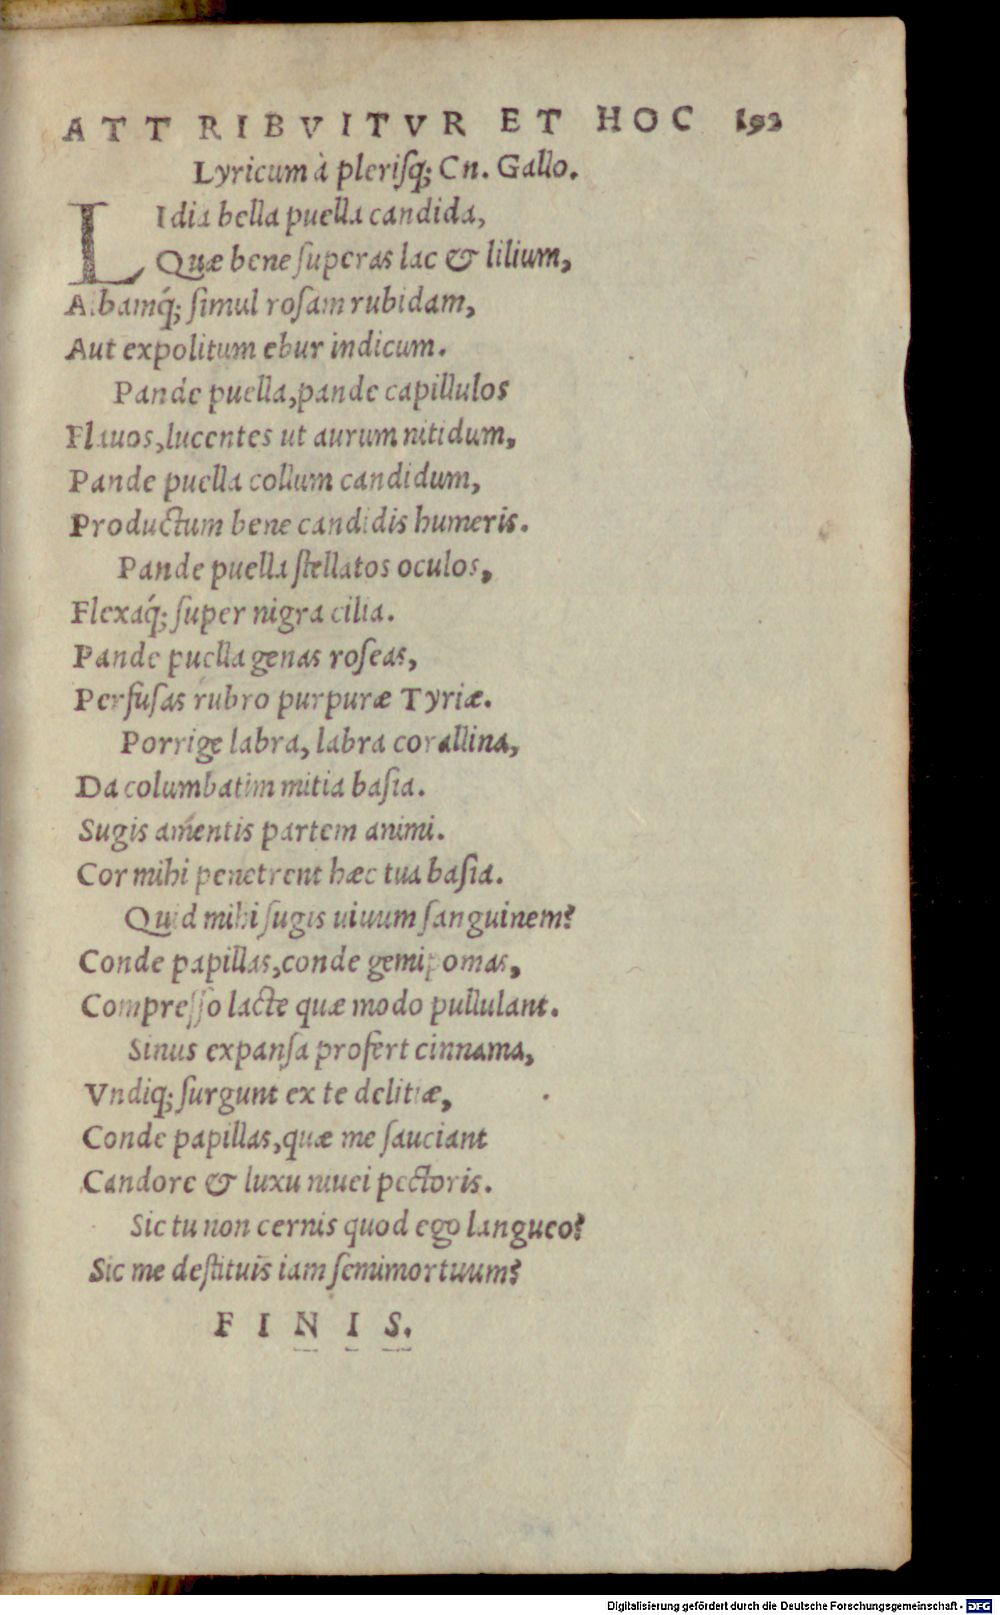 ATTRIBVITVR ET HOC 192
Lyricum à pleriſq; Cn. Gallo.
LIdia bella puella candida,
Quæ bene ſuperas lac & lilium,
Albamq́; ſimul roſam rubidam,
Aut expolitum ebur indicum.
Pande puella, pande capillulos
Flauos, lucentes ut aurum nitidum,
Pande puella collum candidum,
Productum bene candidis humeris.
Pande puella ſtellatos oculos,
Flexaq́; ſuper nigra cilia.
Pande puella genas roſeas,
Perfuſas rubro purpuræ Tyriæ.
Porrige labra, labra corallina,
Da columbatim mitia baſia.
Sugis amentis partem animi.
Cor mihi penetrent hæc tua baſia.
Quid mihi ſugis uiuum ſanguinem?
Conde papillas, conde gemipomas,
Compreſſo lacte quæ modo pullulant.
Sinus expanſa profert cinnama,
Vndiq; ſurgunt ex te delitiæ,
Conde papillas, quæ me ſauciant
Candore & luxu niuei pectoris.
Sic tu non cernis quod ego langueo?
Sic me deſtituis iam ſemimortuum?
FINIS.
Digitalisierung gefördert durch die Deutsche Forschungsgemeinschaft - DFG